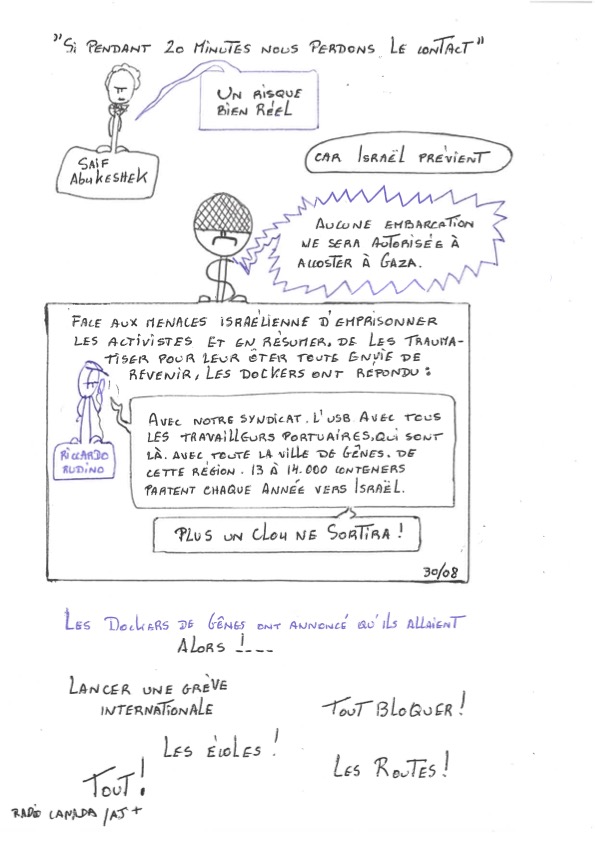 "Si PENDANT 20 MINUTES NOUS PERDONS LE CONTACT"
UN RISQUE
BIEN RÉEL
SAIF
ABUKESHEK
CAR ISRAËL PRÉVIENT
AUCUNE EMBARCATION
NE SERA AUTORISÉE À
ACCOSTER À GAZA.
FACE AUX MENACES ISRAÉLIENNE D'EMPRISONNER
LES ACTIVISTES ET EN RÉSUMER, DE LES TRAUMA-
TISER POUR LEUR ÔTER TOUTE ENVIE DE
REVENIR, LES DOCKERS ONT RÉPONDU :
RICCARDO
RUDINO
AVEC NOTRE SYNDICAT. L'USB AVEC TOUS
LES TRAVAILLEURS PORTUAIRES, QUI SONT
LÀ. AVEC TOUTE LA VILLE DE GÊNES. DE
CETTE RÉGION. 13 À 14.000 CONTENERS
PARTENT CHAQUE ANNÉE VERS ISRAËL.
PLUS UN CLOU NE SORTIRA !
30/08
LES DOCKERS DE GÊNES ONT ANNONCÉ QU'ILS ALLAIENT
ALORS !---
LANCER UNE GRÈVE
INTERNATIONALE
TOUT BLOQUER !
LES ÉCOLES !
LES ROUTES !
TOUT !
RADIO CANADA / AJ+